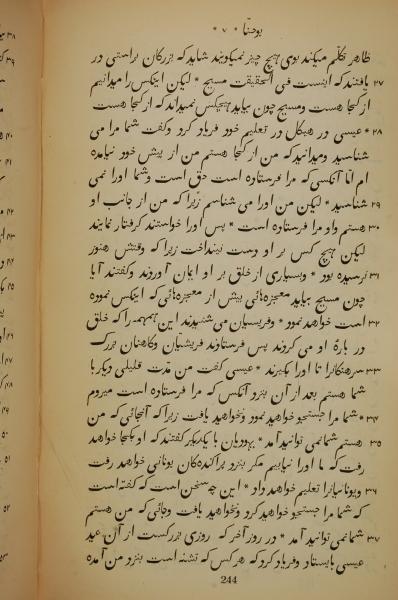 یوحنا * ۷ *
ظاهر تکلّم میکند بوی هیچ چیز نمیگویند شاید که بزرگان براستی در
۲۷ یافتند که اینست فی الحقیقت مسیح * لیکن اینکس را میدانیم
از کجا هست و مسیح چون بیاید هیچکس نمیداند که از کجا هست
۲۸ * عیسی در هیکل در تعلیم خود فریاد کرد و گفت شما مرا می
شناسید و میدانید که من از کجا هستم من از پیش خود نیامده
ام امّا آنکسی که مرا فرستاده است حق است و شما اورا نمی
۲۹ شناسید * لیکن من اورا می شناسم زیرا که من از جانب او
۳۰ هستم و او مرا فرستاده است * پس اورا خواستند گرفتار نمایند
لیکن هیچ کس بر او دست نینداخت زیرا که وقتش هنوز
۳۱ نرسیده بود * و بسیاری از خلق بر او ایمان آوردند و گفتند آیا
چون مسیح بیاید معجزهائی بیش از معجزهائی که اینکس نموده
۳۲ است خواهد نمود * و فریسیان می شنیدند این همهمه را که خلق
در بارهٔ او می کردند پس فرستادند فریسیان و کاهنان بزرگ
۳۳ سرهنگانرا تا اورا بگیرند * عیسی گفت من مدّت قلیلی دیگر با
شما هستم بعد از آن بنزد آنکس که مرا فرستاده است میروم
۳۴ * شما مرا جستجو خواهید نمود و نخواهید یافت زیرا که آنجائی که من
۳۵ هستم شما نمی توانید آمد * یهودیان با یکدیگر گفتند که او بکجا خواهد
رفت که ما اورا نیابیم مگر بنزد پراکندهکان یونانی خواهد رفت
۳۶ و یونانیانرا تعلیم خواهد داد * این چه سخن است که گفته است
که شما مرا جستجو خواهید کرد و نخواهید یافت و جائی که من هستم
۳۷ شما نمی توانید آمد * در روز آخر که روزی بزرگست از آن عید
عیسی بایستاد و فریاد کرد که هر کس که تشنه است بنزد من آمده
244